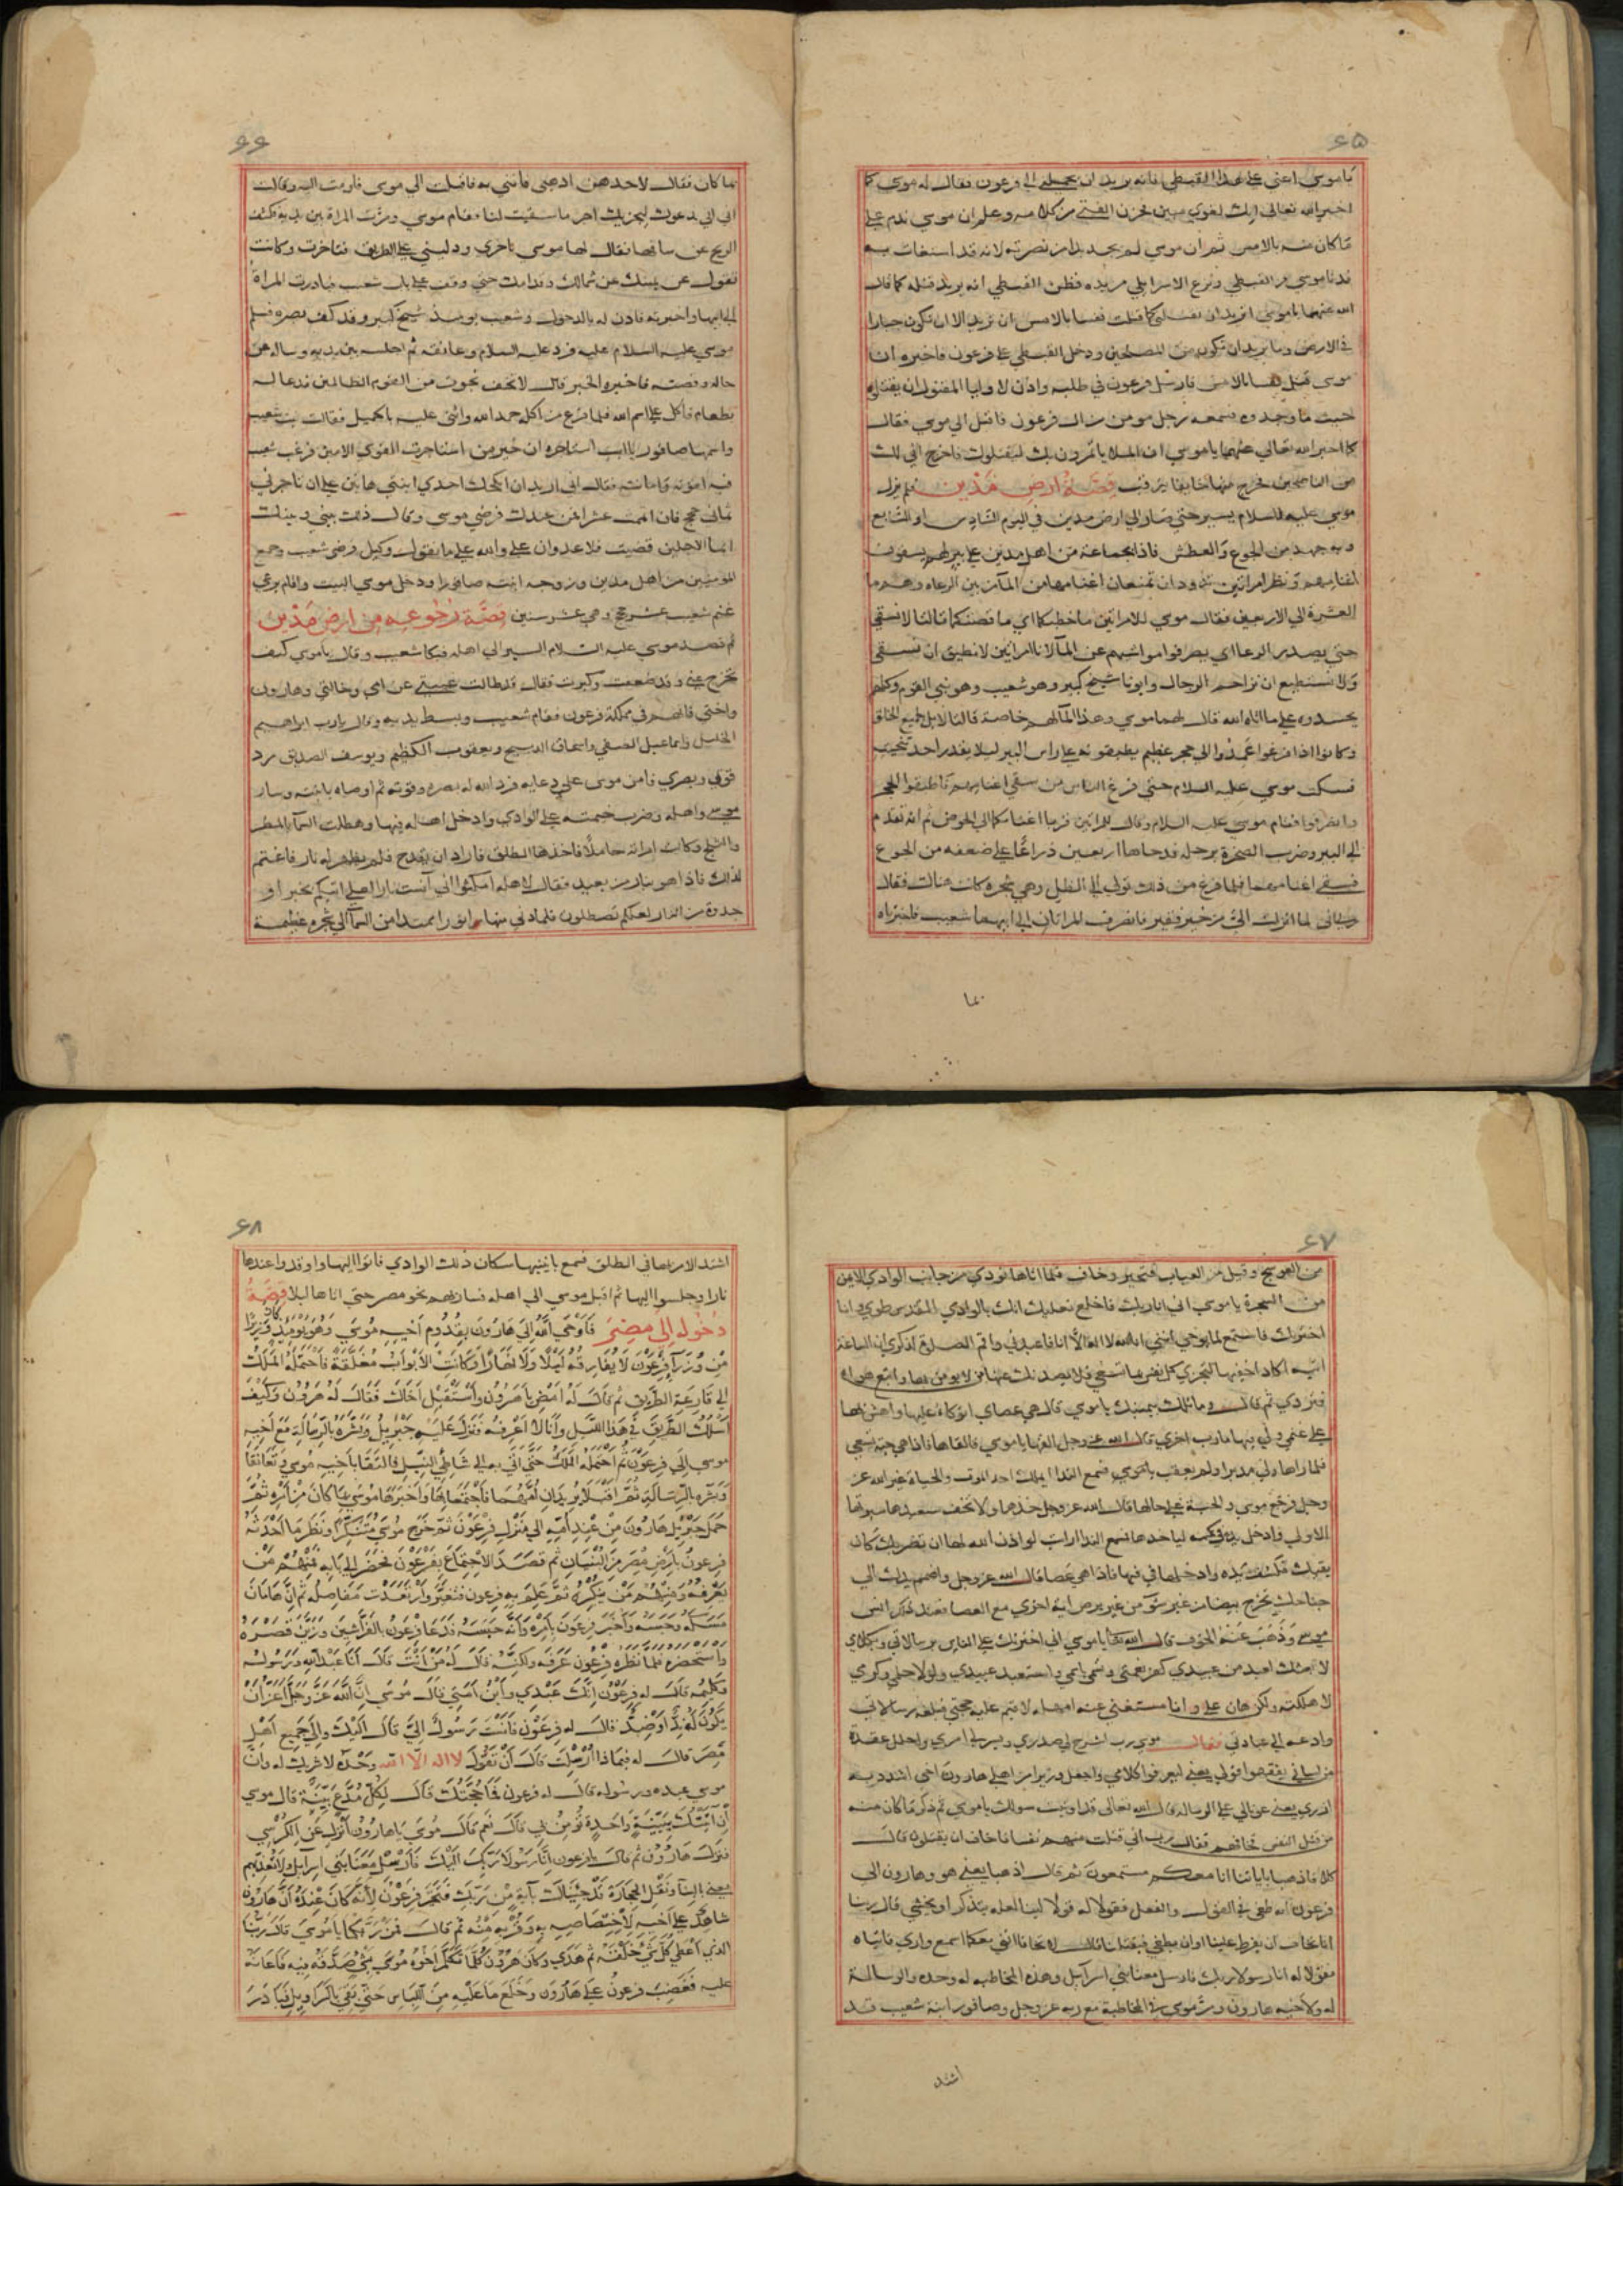 ۶۵
ياموسى اعنى على هذا القبطى فانه يريد ان يحملنى الى فرعون فقال له موسى كما
اخبر الله تعالى انك لغوى مبين فحزن الفتى من كلامه وعلم ان موسى ندم على
ما كان منه بالامس ثم ان موسى لم يجد بدا من نصرته لانه قد استغاث به
فدنا موسى من القبطى ونزع الاسرايلى من يده فظن القبطى انه يريد قتله كما قال
الله عنهما ياموسى اتريد ان تقتلنى كما قتلت نفسا بالامس ان تريد الا ان تكون جبارا
فى الارض وما تريد ان تكون من المصلحين ودخل القبطى على فرعون فاخبره ان
موسى قتل نفسا بالامس فارسل فرعون فى طلبه واذن لاوليا المقتول ان يقتلوه
حيث ما وجدوه فسمعه رجل مومن من ال فرعون فاقبل الى موسى فقال
كما اخبر الله تعالى عنهما ياموسى ان الملا ياتمرون بك ليقتلوك فاخرج انى لك
من الناصحين فخرج منها خايفا يترقب قصة ارض مدين فلم يزل
موسى عليه السلام يسير حتى صار الى ارض مدين فى اليوم السادس او السابع
وبه جهد من الجوع والعطش فاذا بجماعة من اهل مدين على بير لهم يسقون
اغنامهم ونظر امراتين تذودان تمنعان اغنامها من المآ من بين الرعاه وهم ما
العشرة الى الاربعين فقال موسى للامراتين ما خطبكما اى ما قصتكما قالتا لا نسقى
حتى يصدر الرعا اى يصرفوا مواشيهم عن المآ لانا امراتين لا نطيق ان نسقى
ولا نستطيع ان نزاحم الرجال وابونا شيخ كبير وهو شعيب وهو نبى القوم وكلهم
يحسدوه على ما اتاه الله قال لهما موسى وهذا المآ لهم خاصة قالتا لا بل لجميع الخلق
وكانوا اذا فرغوا عمدوا الى حجر عظيم يطبقونه على راس البير ليلا يقدر احد
فسكت موسى عليه السلام حتى فرغ الناس من سقى اغنامهم فاطبقوا الحجر
وانصرفوا فقام موسى عليه السلام وقال للمراتين قربا اغنامكما الى الحوض ثم انه تقدم
الى البير وضرب الصخرة برجله فدحاها اربعين ذراعا على ضعفه من الجوع
فسقى اغنامهما فلما فرغ من ذلك تولى الى الظل وهى شجره كانت هناك فقال
رب انى لما انزلت الى من خير فقير فانصرف المراتان الى ابيهما شعيب فاخبراه
بما
۶۶
بما كان فقال لاحدهن اذهبى فاتنى به فاقبلت الى موسى فاومت اليه وقالت
ان ابى يدعوك ليجزيك اجر ما سقيت لنا فقام موسى ومرت المراة بين يديه فكشف
الريح عن ساقها فقال لها موسى تاخرى ودلينى على الطريق فتاخرت وكانت
تقول عن يمينك عن شمالك وقدامك حتى وقف على باب شعيب فبادرت المراة
الى ابيها واخبرته فاذن له بالدخول وشعيب يوميذ شيخ كبير وقد كف بصره فسلم
موسى عليه السلام عليه فرد عليه السلام وعانقه ثم اجلسه بين يديه وساله عن
حاله وقصته فاخبره الخبر قال لا تخف نجوت من القوم الظالمين فدعا له
بطعام فاكل على اسم الله فلما فرغ من اكله حمد الله واثنى عليه بالجميل فقالت بنت شعيب
واسمها صافورا ياابت استاجره ان خير من استاجرت القوى الامين فرغب شعيب
فيه لقوته وامانته فقال انى اريد ان انكحك احدى ابنتى هاتين على ان تاجرنى
ثمانى حجج فان اتممت عشرا فمن عندك فرضى موسى وقال ذلك بينى وبينك
ايما الاجلين قضيت فلا عدوان على والله على ما نقول وكيل فرضى شعيب وجمع
المومنين من اهل مدين وزوجه ابنته صافورا ودخل موسى البيت واقام يرعى
غنم شعيب عشر حجج وهى عشر سنين قصة رجوعه من ارض مدين
ثم قصد موسى عليه السلام السير الى اهله فبكا شعيب وقال ياموسى كيف
تخرج عنى وقد ضعفت وكبرت فقال قد طالت غيبتى عن امى وخالتى وهارون
واختى فانهم فى مملكة فرعون فقام شعيب وبسط يديه وقال يارب ابراهيم
الخليل واسماعيل الصفى واسحاق الذبيح ويعقوب الكظيم ويوسف الصديق رد
قوتى وبصرى فامن موسى على دعايه فرد الله له بصره وقوته ثم اوصاه بابنته وسار
موسى واهله وضرب خيمته على الوادى وادخل اهله فيها وهطلت السمآ بالمطر
والثلج وكانت امراته حاملا فاخذها الطلق فاراد ان يقدح فلم يظهر له نار فاغتم
لذلك فاذا هو بنار من بعيد فقال لاهله امكثوا انى آنست نارا لعلى اتيكم بخبر او
جدوة من النار لعلكم تصطلون فلما دنى منها راى نورا ممتدا من السمآ الى شجره عظيمة
۶۷
من العوسج وقيل من العناب فتحير وخاف فلما اتاها نودى من جانب الوادى الايمن
من الشجرة ياموسى انى انا ربك فاخلع نعليك انك بالوادى المقدس طوى وانا
اخترتك فاستمع لما يوحى اننى انا الله لا اله الا انا فاعبدنى واقم الصلوة لذكرى ان الساعة
اتية اكاد اخفيها لتجزى كل نفس بما تسعى فلا يصدنك عنها من لا يومن بها واتبع هواه
فتردى ثم قال وما تلك بيمينك ياموسى قال هى عصاى اتوكا عليها واهش بها
على غنمى ولى فيها مارب اخرى قال الله عز وجل القها ياموسى فالقاها فاذا هى حية تسعى
فلما راها ولى مدبرا ولم يعقب ياموسى فسمع الندا ايملك احد الموت والحياة غير الله عز
وجل فرجع موسى والحية على حالها قال الله عز وجل خذها ولا تخف سنعيدها سيرتها
الاولى فادخل يده فى كمه لياخدها فسمع الندا ارايت لو اذن الله لها ان تضربك كان
يقيك فكشف يده وادخلها فى فيها فاذا هى عصا قال الله عز وجل واضمم يدك الى
جناحك تخرج بيضا من غير سو من غير برص اية اخرى مع العصا فعند ذلك انس
موسى وذهب عنه الخوف قال الله تعالى ياموسى انى اخترتك على الناس برسالاتى وبكلامى
لابعثك لعبد من عبيدى كفر نعمتى وتسمى باسمى واستعبد عبيدى ولولا حلمى وكرمى
لاهلكته ولكن هان على وانا مستغنى عنه امهله لاقيم عليه حجتى فبلغه رسالاتى
وادعه الى عبادتى فقال موسى رب اشرح لى صدرى ويسر لى امرى واحلل عقدة
من لسانى يفقهوا قولى يعنى ليعرفوا كلامى واجعل لى وزيرا من اهلى هارون اخى اشدد به
ازرى يعنى عونا لى على الرسالة قال الله تعالى قد اوتيت سولك ياموسى ثم ذكر ما كان منه
من قتل النفس فخافهم فقال رب انى قتلت منهم نفسا فاخاف ان يقتلون قال
كلا فاذهبا باياتنا انا معكم مستمعون ثم قال اذهبا يعنى هو وهارون الى
فرعون انه طغى فى القول والفعل فقولا له قولا لينا لعله يتذكر او يخشى قال ربنا
اننا نخاف ان يفرط علينا او ان يطغى فيقتلنا قال لا تخافا اننى معكما اسمع وارى فاتياه
فقولا له انا رسولا ربك فارسل معنا بنى اسرآيل وهذه المخاطبه له وحده والرسالة
له ولاخيه هارون ومر موسى فى المخاطبة مع ربه عز وجل وصافورا ابنة شعيب قد
اشتد
۶۸
اشتد الامر بها فى الطلق فسمع بانينها سكان ذلك الوادى فاتوا اليها واوقدوا عندها
نارا وجلسوا اليها ثم اقبل موسى الى اهله فسار بهم نحو مصر حتى اتاها ليلا قصة
دخوله الى مصر فاوحى الله الى هارون بقدوم اخيه موسى وهو يوميذ وزيرا
من وزرآ فرعون لا يفارقه ليلا ولا نهارا وكانت الابواب مغلقة فاحتمله الملك
الى قارعة الطريق ثم قال له امض ياهرون واستقبل اخاك فقال له هرون وكيف
اسلك الطريق فى هذا الليل وانا لا اعرفه فنزل عليه جبريل وبشره بالرسالة مع اخيه
موسى الى فرعون ثم احتمله الملك حتى اتى به الى شاطى النيل فالتقا باخيه موسى وتعانقا
وبشره بالرسالة ثم اقبلا يريدان امهما فاجتمعا بها واخبرها موسى بما كان من امره ثم
حمل جبريل هارون من عند امه الى منزل فرعون ثم خرج موسى متنكرا ونظر ما احدثه
فرعون بارض مصر من البنيان ثم قصد الاجتماع بفرعون فحضر الى بابه فمنهم من
يعرفه ومنهم من ينكره ثم علم به فرعون فتغير وارتعدت مفاصله ثم ان هامان
مسكه وحبسه واخبر فرعون بامره وانه حبسه فدعا فرعون بالفراشين وزين قصره
واستحضره فلما نظره فرعون عرفه ولكنه قال له من انت قال انا عبد الله ورسوله
وكليمه قال له فرعون انك عبدى وابن امتى قال موسى ان الله عز وجل اعز ان
يكون له ند او ضد قال له فرعون فانت رسول الى قال اليك والى جميع اهل
مصر قال له فبماذا ارسلت قال ان تقول لا اله الا الله وحده لا شريك له وان
موسى عبده ورسوله قال له فرعون فما حجتك قال لكل مدع بينة قال موسى
ان اتيتك ببينة واحدة تومن بى قال نعم قال موسى ياهارون انزل عن الكرسى
فنزل هارون ثم قال يافرعون انا رسولا ربك اليك فارسل معنا بنى اسرآيل ولا تعذبهم
يعنى بالبنآ ونقل الحجارة قد جيناك بآية من ربك فتحير فرعون لانه كان عنده ان هارون
شاهد على اخيه لاختصاصه به وقربه منه ثم قال فمن ربكما ياموسى قال ربنا
الذى اعطى كل شى خلقه ثم هدى وكان هرون كلما تكلم اخوه موسى بشى صدقه فيه فاعانه
عليه فغضب فرعون على هارون وخلع ما عليه من اللباس حتى بقى بالسراويل فبادر